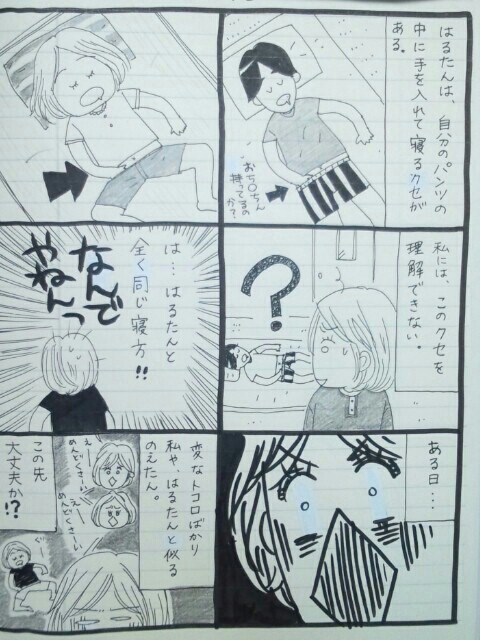 はるたんは、自分のパンツの
中に手を入れて寝るクセが
ある。
おち○ちん
持ってるの
か?
私には、このクセを
理解できない。
?
ある日…
は…はるたんと
全く同じ寝方!!
なんで
やねんっ
変なトコロばかり
私や、はるたんと似る
のえたん。
えー
めんどくさい
えー
めんどくさい
この先
大丈夫か!?